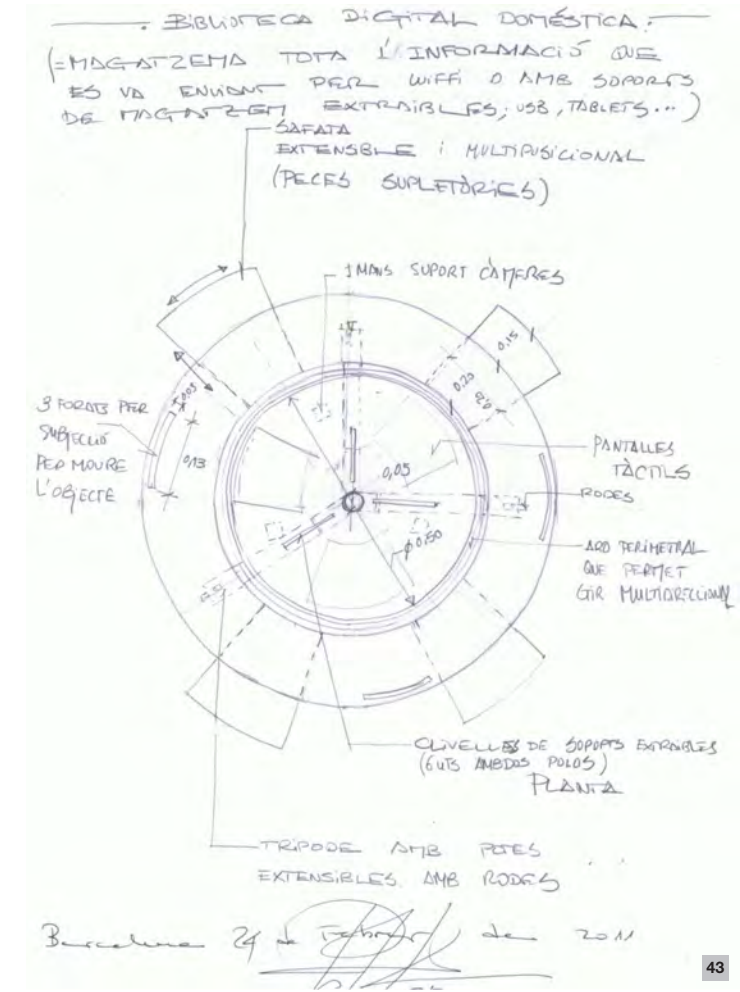 BIBLIOTECA DIGITAL DOMÉSTICA:
(=MAGATZEMA TOTA L'INFORMACIÓ QUE
ES VA ENVIANT PER WIFFI O AMB SOPORTS
DE MAGATZEM EXTRAIBLES; USB, TABLETS...)
SAFATA
EXTENSBLE I MULTIPOSICIONAL
(PECES SUPLETÒRIES)
1 MANS SUPORT CÀMERES
0.15
0.20
0,03
0,13
3 FORATS PER
SUBJECCIÓ
PER MOURE
L'OBJECTE
PANTALLES
TÀCTILS
0,05
RODES
φ0.50
ARO PERIMETRAL
QUE PERMET
GIR MULTIDIRECCIONAL
CLIVELLES DE SOPORTS EXTRAIBLES
(6 UTS AMBDOS POLOS)
PLANTA
TRIPODE AMB POTES
EXTENSIBLES AMB RODES
Barcelona 24 de Febrer de 2011
43